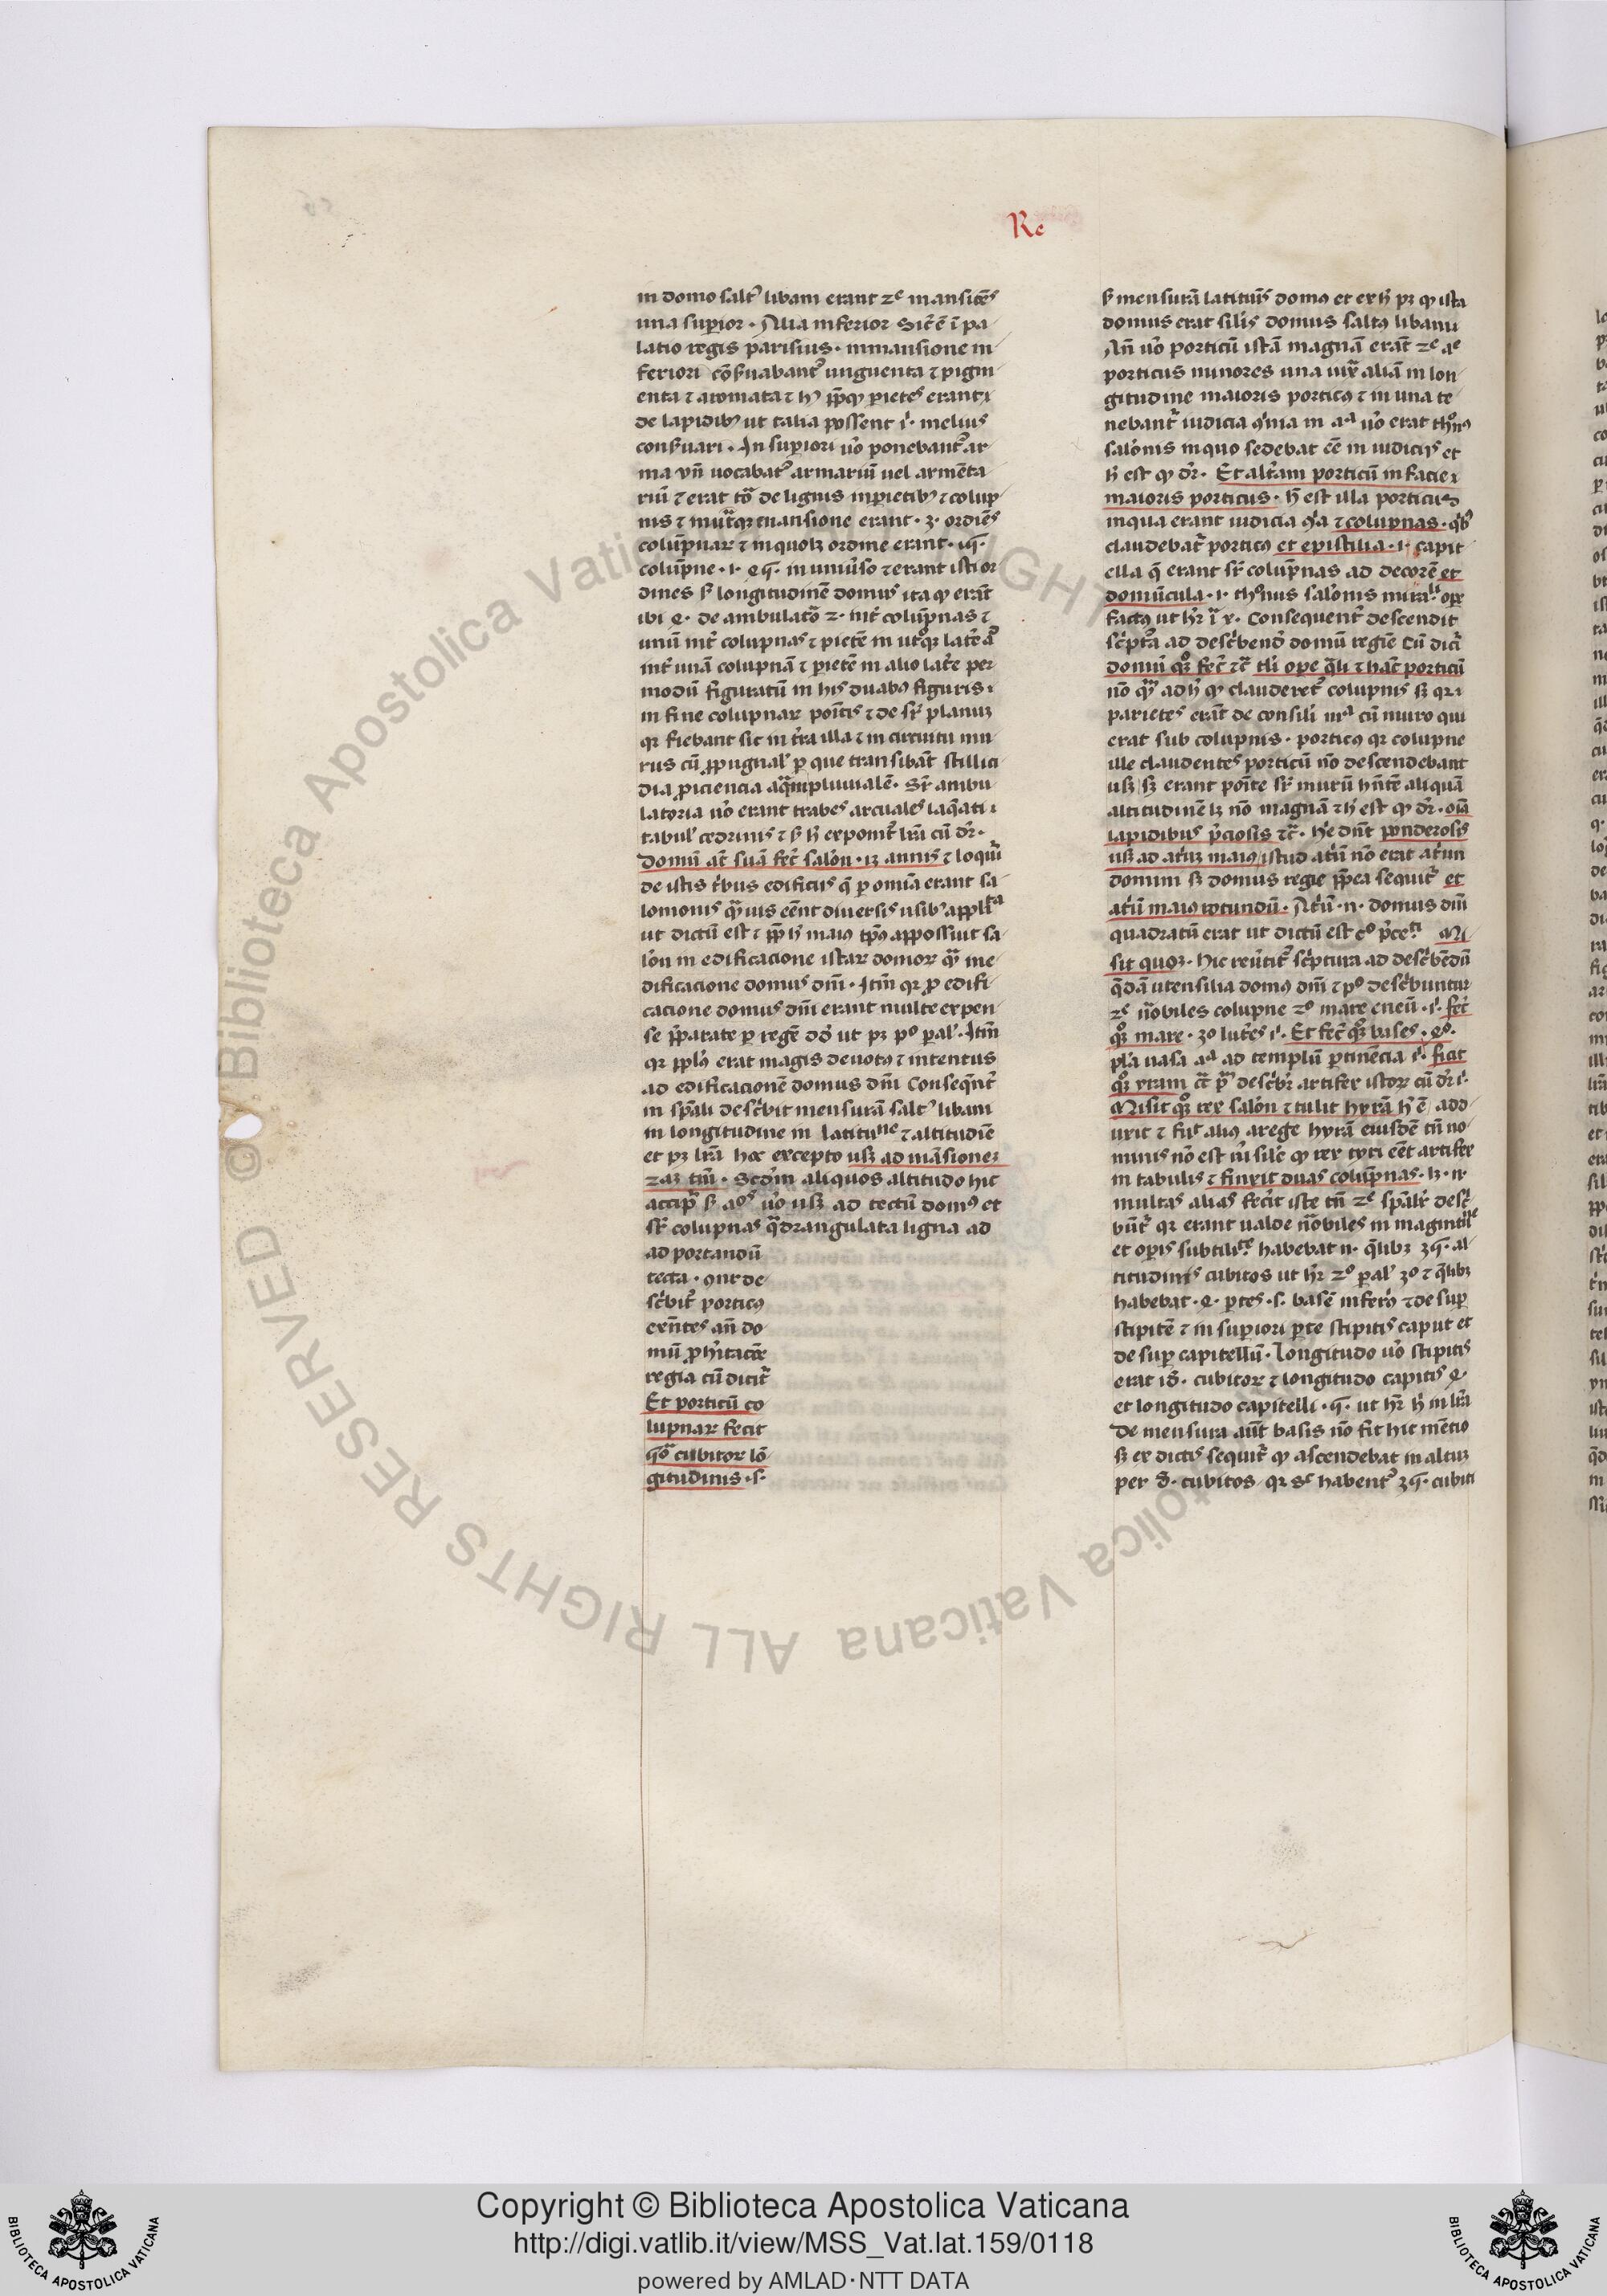 Re
in domo salt᷒ libani erant 2e mansiōes
una supior · Alia inferior sic̄ ē ī pa
latio regis parisius · in mansione in
feriori cōẜuabantᷣ unguenta ⁊ pigm
enta ⁊ aromata ⁊ h᷒ ꝓpt᷒ pietes erant
de lapidibꝫ ut talia possent ī melius
conẜuari · In supiori u̇o ponebantᷣ ar
ma vn̄ uocabatᷣ armariū uel armēta
riū ⁊ erat to᷑ de lignis in pietibꝫ ⁊ colūp
nis ⁊ in utᷓqꝫ mansione erant · 3 · ordies̄
colūpnaꝝ ⁊ in quolꝫ ordine erant
colūpne · in uniu̇so ⁊ erant isti or
dines ẜ longitudinē domus ita ꝙ erāt
ibi 4 · de ambulato᷑ 2 · int̄ colūpnas ⁊
unū int̄ colupnas ⁊ pietē in utᷓqꝫ lat̄e
int̄ unā colupnā ⁊ pietē in alio lat̄e per
modū figuratū in his duabꝰ figuris
in fine colupnaꝝ poitis ⁊ de sr̄ planuꝫ
qꝛ fiebant sic in t̄ra illa ⁊ in circuitu mu
rus cū ꝓpugnal᷒ p que transibāt stillici
dia piciencia aquā pluuialē · Sr̄ ambu
latoria u̇o erant trabes arcuales laq̄ati
tabul᷒ cedrinis ⁊ ẜ h̄ exponitᷣ lr̄a cū dr̄ ·
Domū at̄ suā fec̄ salōn · 13 annis ⁊ loquīt
de istis t̄bus edificiis q̄ p omīa erant sa
lomonis qᷓuis eēnt diuersis usibꝫ applicᵗᵃ
ut dictū est ⁊ ꝓpt h̄ maiꝰ tp̄us appossuit sa
lōn in edificacione istaꝝ domoꝝ qᷓ in e
dificacione domus dn̄i · Itm̄ qꝛ p edifi
cacione domus dn̄i erant multe expen
se p̄parate p regē dd̄ ut pꝫ pᵒ pal᷒ · Itm̄
qꝛ ppl̄s erat magis deuotꝰ ⁊ intentus
ad edificacionē domus dn̄i Conseqn̄t̄
in sp̄ali desc̄bit mensurā salt᷒ libani
in longitudine in latituⁿᵉ ⁊ altitudīe
et pꝫ lr̄a hoc excepto usꝫ ad māsioneꝫ
2aꝫ tm̄ · Scdm̄ aliquos altitudo hic
accip̄ ẜ aᵒˢ u̇o usꝫ ad tectū domꝰ et
sr̄ colupnas qᷓdrangulata ligna ad
ad portandū
tecta · 9nt̄ de
sc̄bitᷣ porticꝰ
exn̄tes an̄ do
mū p̄hitacōe
regia cū dicit̄
Et porticū co
lupnaꝝ fecit
qo᷑ cubitoꝝ lō
gitudinis · s ·
ẜ mensurā latituīs domꝰ et ex h̄ pꝫ ꝙ ista
domus erat silis̄ domus saltꝰ libani
An̄ u̇o porticū istā magnā erāt 2e aᵉ
porticus minores una iux̄ aliam in lon
gitudine maioris porticꝰ ⁊ in una te
nebant̄ iudicia 9̄nia in aᵃ u̇o erat thºnꝰ
salōnis in quo sedebat eē̄ in iudiciis et
h̄ est ꝙ dr̄ · Et alt̄am porticū in facie
maioris porticus · h̄ est illa porticus
in qua erant iudicia 9̄a ⁊ colupnas · qᵇ᷒
claudebat̄ porticꝰ et epistilia · i · capit
ella q̄ erant sr̄ colūpnas ad decorē et
domūcula · i · thºnus salōnis mirabˡⁱ ope
factꝰ ut hr̄ ī x · Consequent̄ descendit
sc̄ptᷓa ad desc̄bend̄ domū regiē Cū dicī
domū qꝫ fec̄ ⁊c̄ tli̇ ope q̄li ⁊ hāc porticū
nō qᷓ ad h̄ ꝙ clauderetᷣ colupnis sꝫ qꝛ
parietes erāt de consili mᵃ cū muro qui
erat sub colupnis · porticꝰ qꝛ colupne
ille claudentes porticū nō descendebant
usꝫ sꝫ erant poīte sr̄ murū hn̄tē aliquā
altitudinē lꝫ nō magnā ⁊ h̄ est ꝙ dr̄ · oīa
lapidibus p̄ciosis ⁊c̄ · he dn̄t ponderosis
usꝫ ad at̄iꝫ maiꝰ istud at̄iū nō erat at̄iū
domini sꝫ domus regie ꝓpt̄ea sequit̄ et
at̄iū maiꝰ rotundū · At̄iū · n · domus dn̄i
quadratū erat ut dictū est cᵒ p̄ceⁿᵗⁱ Mi
sit quoꝫ · hic reu̇tit̄ sc̄ptura ad desc̄bēdū
q̄dā utensilia domꝰ dn̄i ⁊ pᵒ desc̄buntur
2e nōbiles colupne 2ᵒ mare eneū · i · fec̄
qꝫ mare · 3ᵒ lut̄es i · Et fec̄ qꝫ bases · 4ᵒ ·
pl̄a uasa aᵃ ad templū ptinēcia i · fecit
qꝫ yram ⁊c̄ pᷓ desc̄br̄ artifex istoꝝ cū dr̄ i ·
Misit qꝫ rex salōn ⁊ tulit hyrā h̄ ē add
uxit ⁊ fuᵗ aliꝰ a rege hyrā eiusdē tn̄ no
minis nō est u̇isilē ꝙ rex tyri eēt artifex
in tabulis ⁊ finxit duas colūpnas · lꝫ · n ·
multas alias fecīt iste tn̄ 2e sp̄alit̄ desc̄
būt̄ qꝛ erant ualde nōbiles in magintᵈⁱⁿᵉ
et opīs subtilitᵗᵉ habebat n · q̄libꝫ al
titudinis cubitos ut hr̄ 2ᵒ pal᷒ 3ᵒ ⁊ q̄libꝫ
habebat · 4 · ptes · s · basē inferiꝰ ⁊ de sup
stipitē ⁊ in supiori pte stipitis caput et
de sup capitellū · Longitudo u̇o stipitis
erat 18 · cubitoꝝ ⁊ longitudo capitis 4 ·
et longitudo capitelli · ut hr̄ h̄ in lr̄a
De mensura aūt basis nō fit hic mētio
sꝫ ex dictis sequit̄ ꝙ ascendebat in altuꝫ
per · cubitos qꝛ sᵉ habentᷣ cubiti
Copyright © Biblioteca Apostolica Vaticana
http://digi.vatlib.it/view/MSS_Vat.lat.159/0118
powered by AMLAD·NTT DATA
BIBLIOTECA APOSTOLICA VATICANA
BIBLIOTECA APOSTOLICA VATICANA